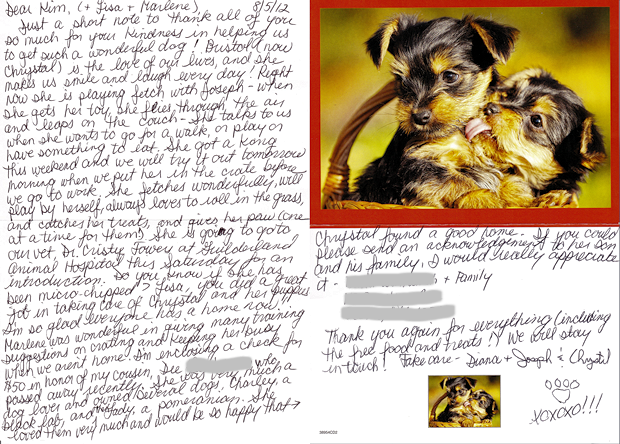 Dear Kim, (+ Lisa + Marlene), 8/5/12
Just a short note to thank all of you
so much for your kindness in helping us
to get such a wonderful dog! Bristol (now
Chrystal) is the love of our lives, and she
makes us smile and laugh every day! Right
now she is playing fetch with Joseph - when
she gets her toy, she flies through the air
and leaps on the couch - She talks to us
when she wants to go for a walk, or play or
have something to eat. She got a Kong
this weekend and we will try it out tomorrow
morning when we put her in the crate before
we go to work. She fetches wonderfully, will
play by herself, always loves to roll in the grass,
and catches her treats, and gives her paw (one
at a time for them)! She is going to go to
our vet, Dr. Cristy at Guilderland
Animal Hospital this Saturday for an
introduction. Do you know if she has
been micro-chipped? Lisa, you did a great
job in taking care of Chrystal and her puppies
I'm so glad everyone has a home now!
Marlene was wonderful in giving many training
suggestions on crating and keeping her busy
when we aren't home. I'm enclosing a check for
$50 in honor of my cousin, Dee who
passed away recently. She was very much a
dog lover and owned several dogs, Charley, a
black lab, and Lady, a pomeranian. She
loved them very much and would be so happy that →
Chrystal found a good home. If you could
please send an acknowledgement to her son
and his family, I would really appreciate
it -
+ Family
Thank you again for everything (including
the free food and treats!) We will stay
in touch! Take care - Diana + Joseph & Chrystal
xoxoxo!!!